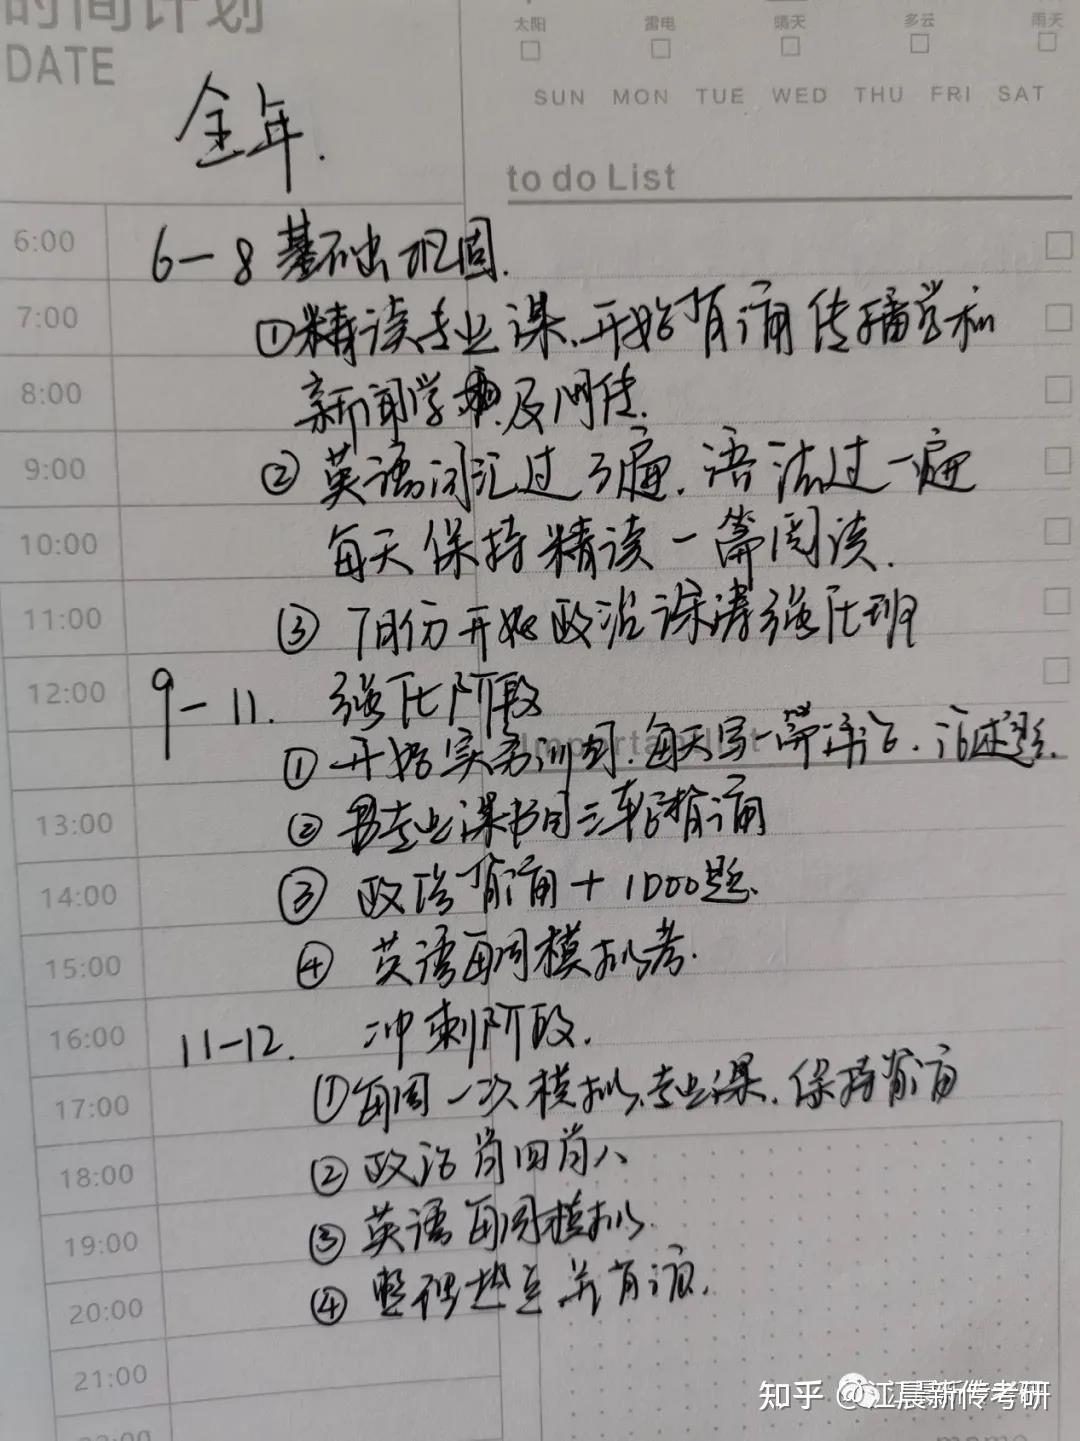 时间计划
DATE
太阳 雷电 晴天 多云 雨天
SUN MON TUE WED THU FRI SAT
全年.
to do List
6:00
6-8 基础巩固.
7:00
①精读专业课、开始背诵传播学和
8:00
新闻学 及网传.
9:00
②英语词汇过3遍.语法过一遍
10:00
每天保持精读一篇阅读.
11:00
③7月份开始政治课涛强化班
12:00
9-11. 强化阶段
Important list
①开始实务训练.每天写一篇评论.论述题.
13:00
②专业课书目三轮背诵
14:00
③政治背诵+1000题.
15:00
④英语每周模拟考.
16:00
11-12. 冲刺阶段.
17:00
①每周一次模拟.专业课.保持背诵
18:00
②政治肖四肖八
19:00
③英语每周模拟.
20:00
④整理热点并背诵.
21:00
22:00
memo
知乎 @江晨新传考研